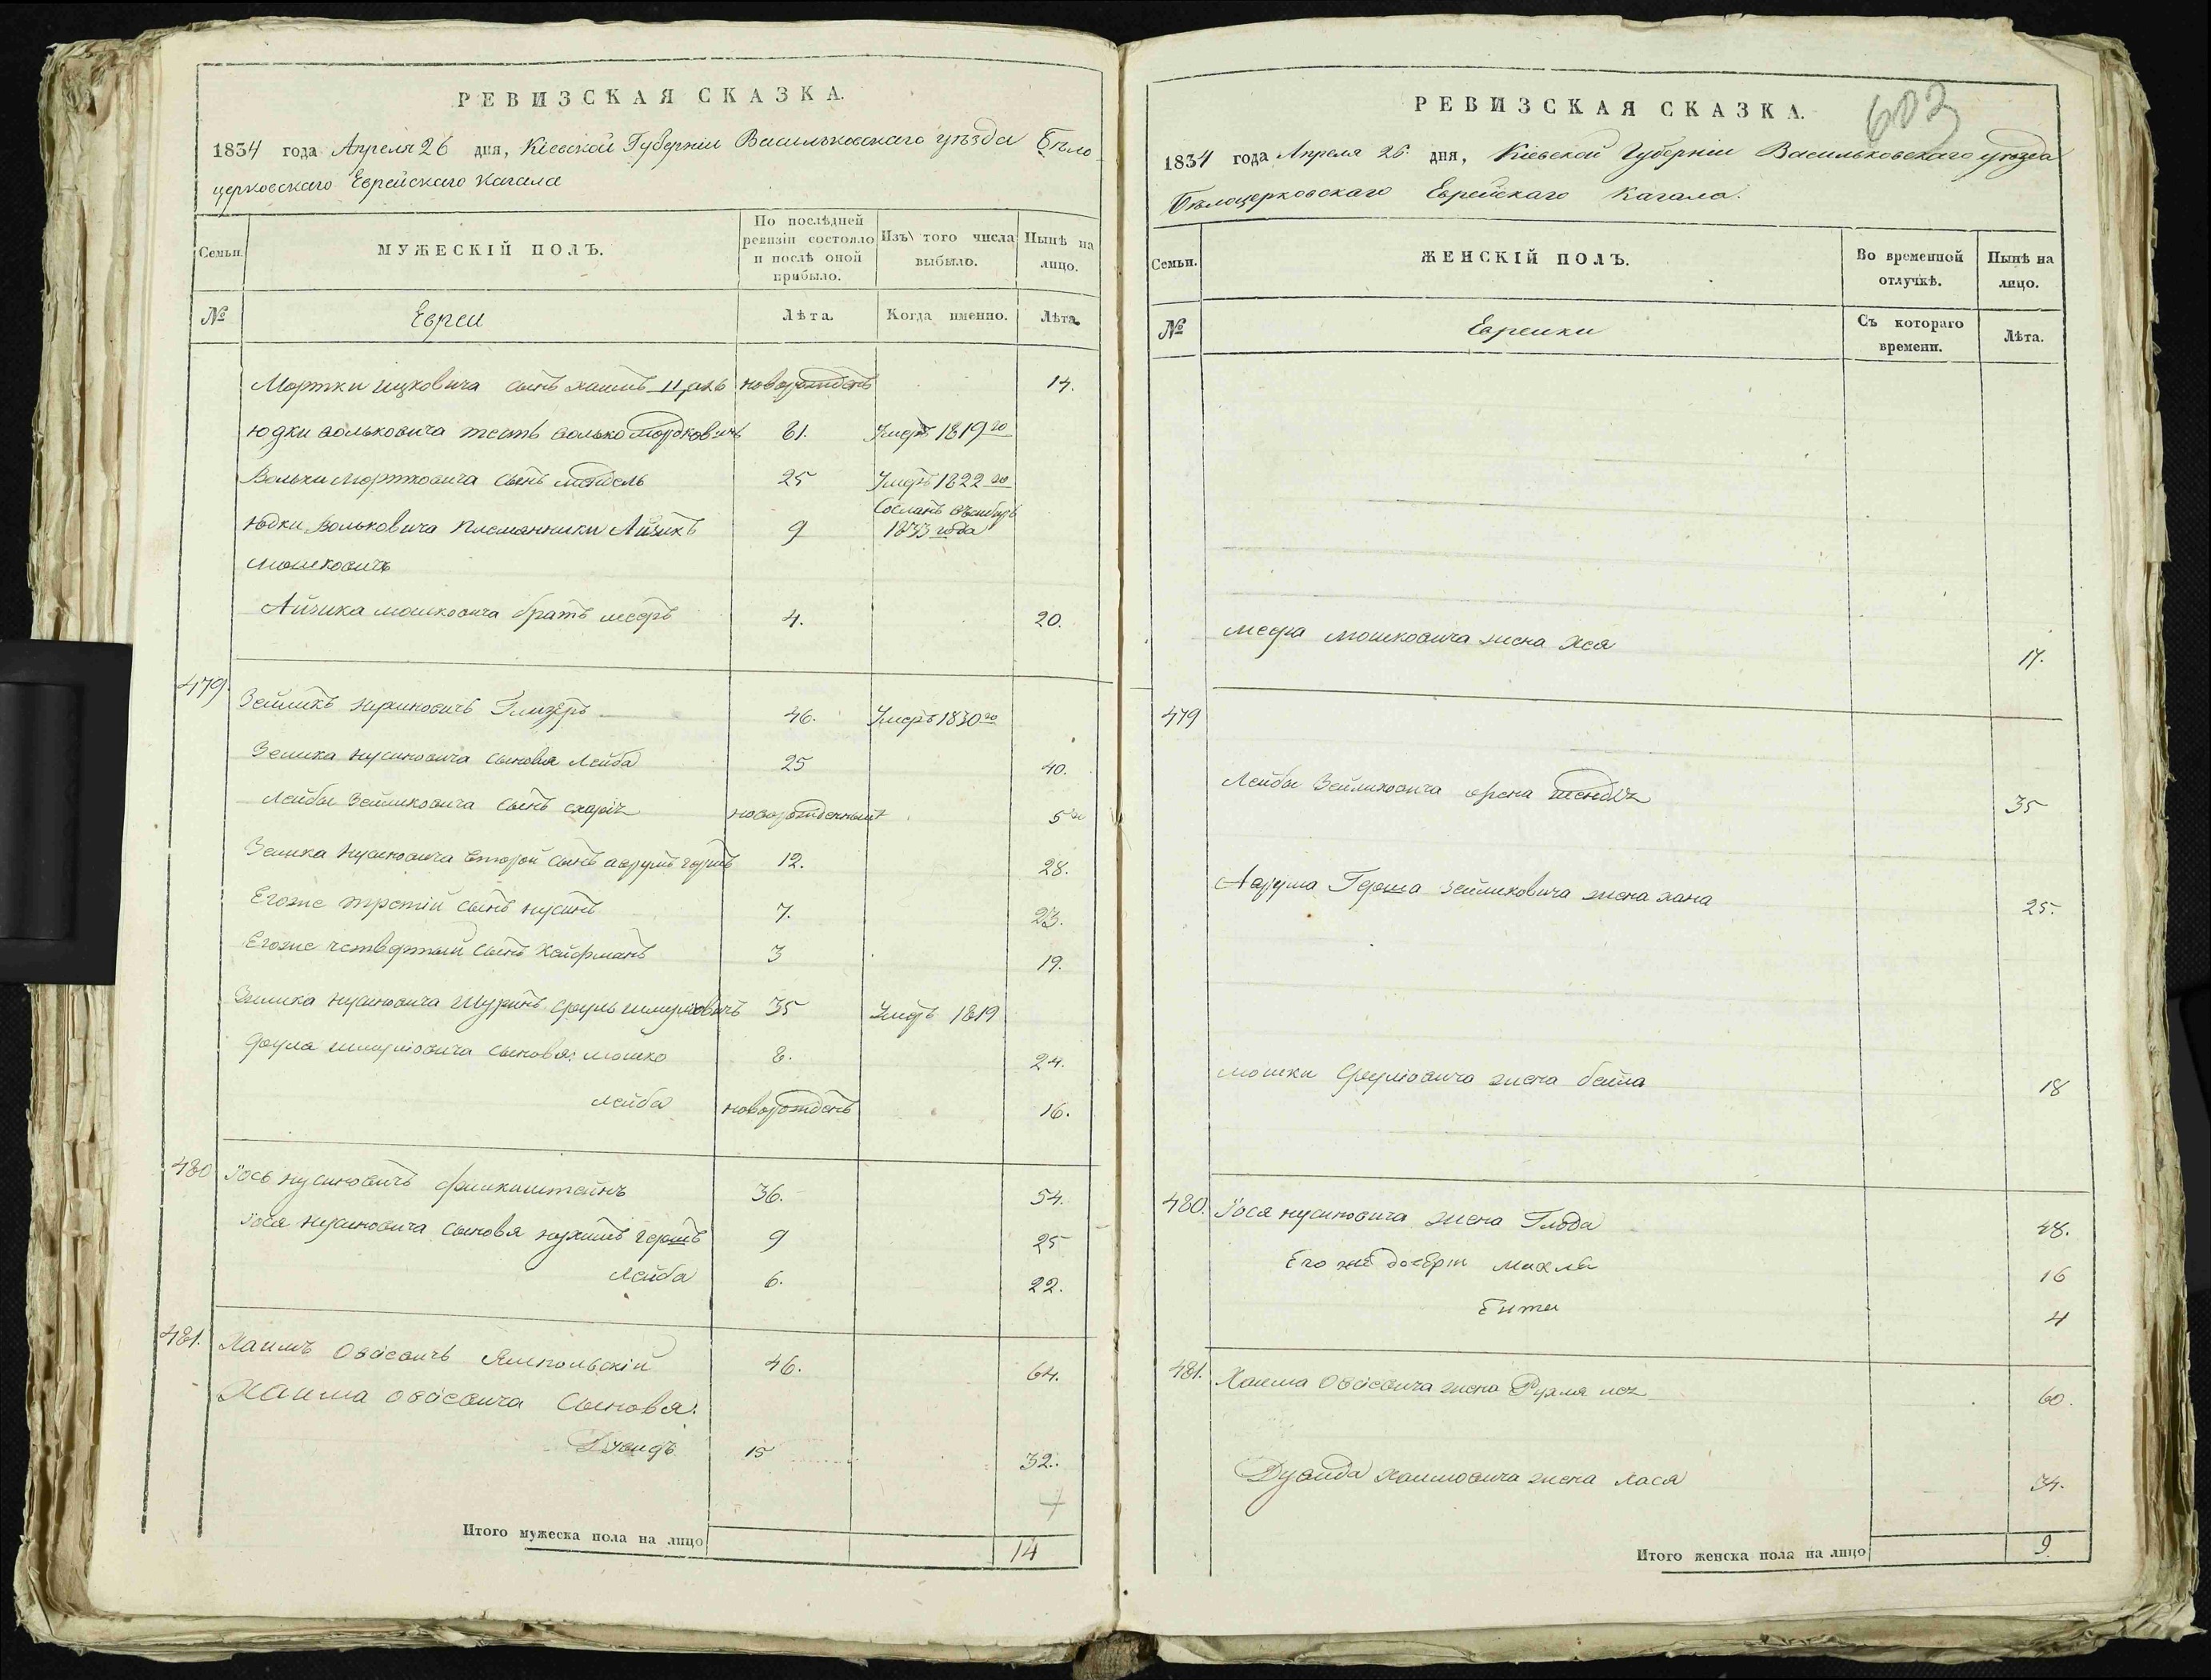 РЕВИЗСКАЯ СКАЗКА.
1834 года Апреля 26 дня, Кіевской Губерніи Васильковскаго уѣзда Бѣло
церковскаго Еврейскаго Кагала
Семьи.
МУЖЕСКІЙ ПОЛЪ.
По послѣдней
ревизіи состояло
и послѣ оной
прибыло.
Изъ того числа
выбыло.
Нынѣ на
лицо.
№
Евреи
Лѣта.
Когда именно.
Лѣта.
Мортки Ицковича сынъ хаимъ новорожденъ 14.
Юдки вольковича тесть волько мордковичъ 61. Умеръ 1819го
Вольки Мортковича сынъ мендель 25 Умеръ 1822го
Юдки вольковича племянники Айзикъ 9 Сосланъ 1833 года
мошковичъ
Айзика мошковича братъ мееръ 4. 20.
479. Зейликъ Глизеръ 46. Умеръ 1830го
Зелика нусиновича сыновья Лейба 25 40.
Лейбы Зейликовича сынъ новорожденный 5
Зелика Нусиновича второй сынъ аврумъ гершъ 12. 28.
Егоже третій сынъ нусинъ 7. 23.
Егоже четвертый сынъ Кайфманъ 3 19.
Зилика нусиновича Шуринъ сруль шмуліовичъ 35 Умеръ 1819
Сруля шмуліовича сыновья: мошко 8. 24.
лейба новорожденъ 16.
480 Іось нусиновичъ финкиштейнъ 36. 54.
Іося нусиновича сыновья нухимъ гершъ 9 25
Лейба 6. 22.
481. Хаимъ Овсіевичъ Ямпольскій 46. 64.
Хаима овсіевича Сыновья:
Дувидъ 15 32.
Итого мужеска пола на лицо 14
603
РЕВИЗСКАЯ СКАЗКА.
1834 года Апреля 26 дня, Кіевской Губерніи Васильковскаго уѣзда
Бѣлоцерковскаго Еврейскаго Кагала.
Семьи.
ЖЕНСКІЙ ПОЛЪ.
Во временной
отлучкѣ.
Нынѣ на
лицо.
№
Еврейки
Съ котораго
времени.
Лѣта.
меера мошковича жена Хая 17.
479
Лейбы Зейликовича жена 35
Аврума Герша зейликовича жена хана 25.
мошки Сруліовича жена бейла 18
480. Іося нусиновича жена Глода 48.
Его же дочери махля 16
Ента 4
481. Хаима Овсіевича жена Рухля 60.
Дувида хаимовича жена хася 34.
Итого женска пола на лицо 9.